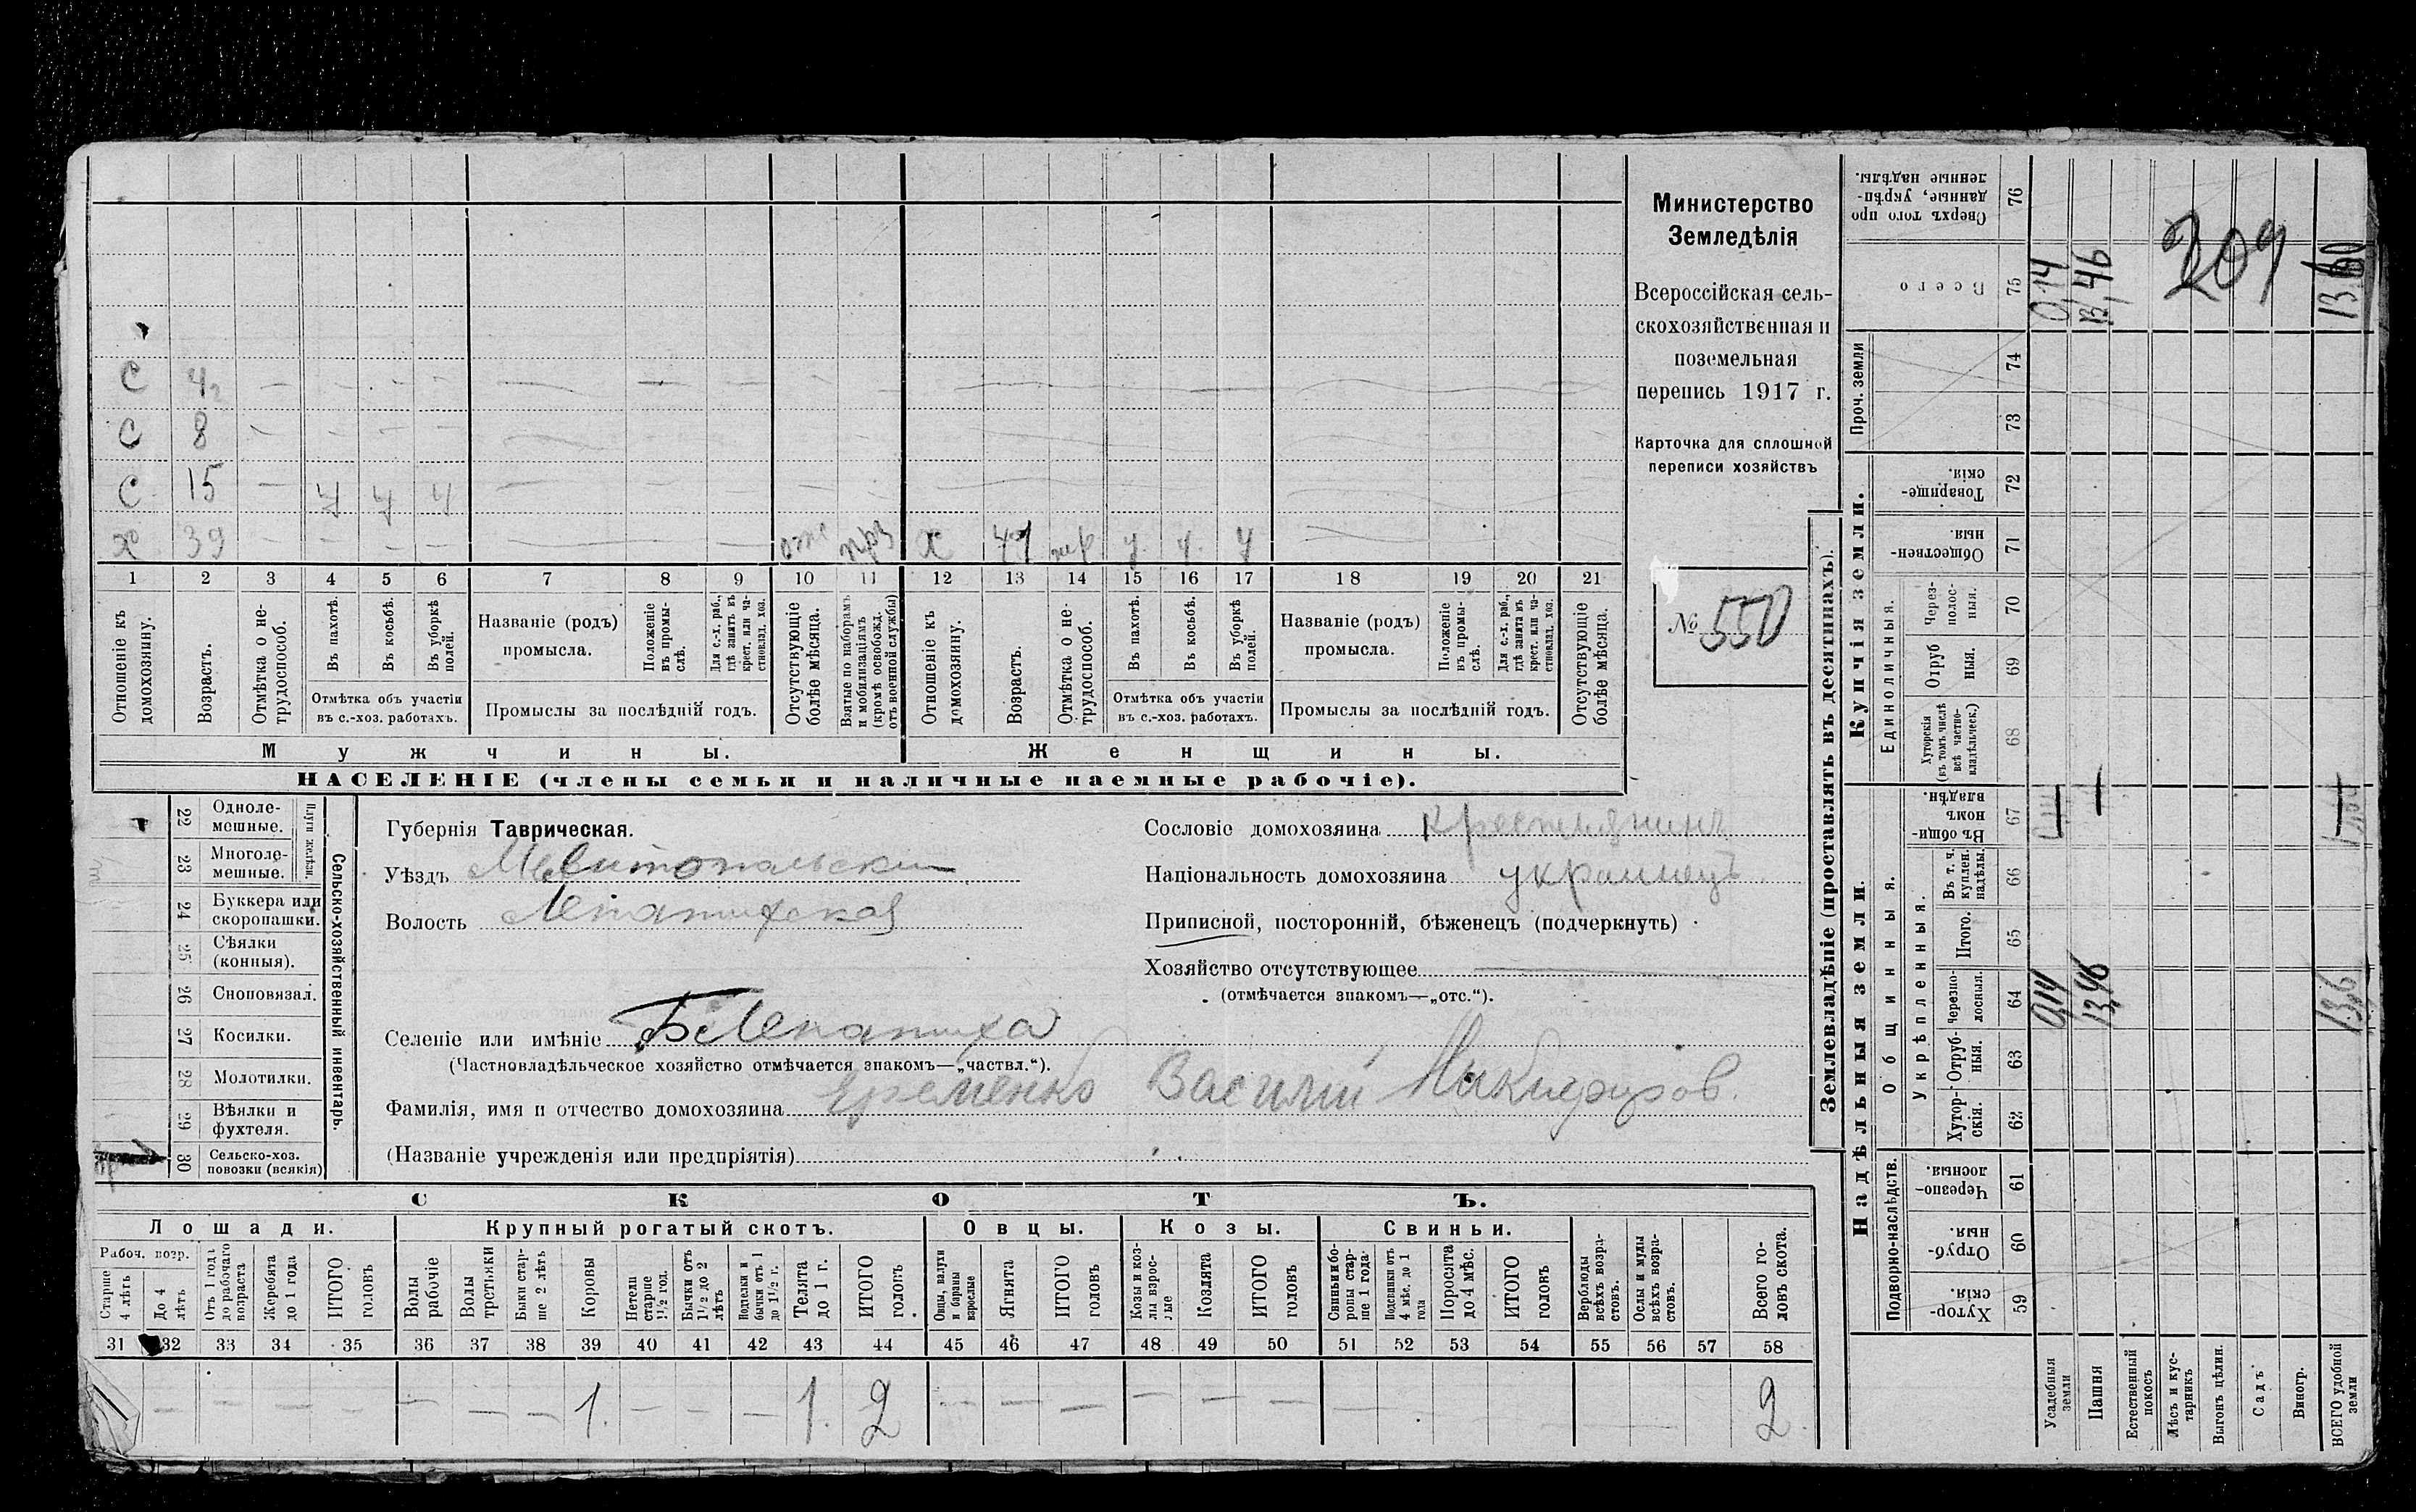 Министерство
Земледѣлія
Всероссійская сель-
скохозяйственная и
поземельная
перепись 1917 г.
Карточка для сплошной
переписи хозяйствъ
№ 550
С 4
С 8
С 15 У У У
Х 39 Х У У У
1 2 3 4 5 6 7 8 9 10 11 12 13 14 15 16 17 18 19 20 21
Отношеніе къ домохозяину.
Возрастъ.
Отмѣтка о не-трудоспособ.
Въ пахотѣ.
Въ косьбѣ.
Въ уборкѣ полей.
Отмѣтка объ участіи
въ с.-хоз. работахъ.
Названіе (родъ)
промысла.
Положеніе въ промы-слѣ.
Для с.-х. раб., гдѣ занятъ въ крест. или ча-стновлад. хоз.
Промыслы за послѣдній годъ.
Отсутствующіе болѣе мѣсяца.
Взятые по наборамъ и мобилизаціямъ (кромѣ освобожд. отъ военной службы)
Отношеніе къ домохозяину.
Возрастъ.
Отмѣтка о не-трудоспособ.
Въ пахотѣ.
Въ косьбѣ.
Въ уборкѣ полей.
Отмѣтка объ участіи
въ с.-хоз. работахъ.
Названіе (родъ)
промысла.
Положеніе въ промы-слѣ.
Для с.-х. раб., гдѣ занята въ крест. или ча-стновлад. хоз.
Промыслы за послѣдній годъ.
Отсутствующіе болѣе мѣсяца.
Мужчины.
Женщины.
НАСЕЛЕНІЕ (члены семьи и наличные наемные рабочіе).
Сельско-хозяйственный инвентарь.
Плуги желѣзн.
22 Одноле-мешные.
23 Многоле-мешные.
24 Буккера или скоропашки.
25 Сѣялки (конныя).
26 Сноповязал.
27 Косилки.
28 Молотилки.
29 Вѣялки и фухтеля.
30 Сельско-хоз. повозки (всякія)
Губернія Таврическая.
Уѣздъ Мелитопольскій
Волость Лепатихская
Селеніе или имѣніе Б Лепатиха
(Частновладѣльческое хозяйство отмѣчается знакомъ—„частвл.“).
Фамилія, имя и отчество домохозяина Еременко Василий Никифоров.
(Названіе учрежденія или предпріятія)
Сословіе домохозяина крестьянинъ
Національность домохозяина украинецъ
Приписной, посторонній, бѣженецъ (подчеркнуть)
Хозяйство отсутствующее
(отмѣчается знакомъ—„отс.“).
СКОТЪ.
Лошади.
Крупный рогатый скотъ.
Овцы.
Козы.
Свиньи.
Рабоч. возр.
Старше 4 лѣтъ
До 4 лѣтъ
Отъ 1 года до рабочаго возраста
Жеребята до 1 года
ИТОГО головъ
Волы рабочіе
Волы третьяки
Быки стар-ше 2 лѣтъ
Коровы
Нетели старше 1½ год.
Бычки отъ 1½ до 2 лѣтъ
Подтелки и бычки отъ 1 до 1½ г.
Телята до 1 г.
ИТОГО головъ.
Овцы, валухи и бараны взрослые
Ягнята
ИТОГО головъ
Козы и коз-лы взрос-лые
Козлята
ИТОГО головъ
Свиньи и бо-ровы стар-ше 1 года
Подсвинки отъ 4 мѣс. до 1 года
Поросята до 4 мѣс.
ИТОГО головъ
Верблюды всѣхъ возра-стовъ.
Ослы и мулы всѣхъ возра-стовъ.
Всего го-ловъ скота.
31 32 33 34 35 36 37 38 39 40 41 42 43 44 45 46 47 48 49 50 51 52 53 54 55 56 57 58
1. 1. 2 2
Землевладѣніе (проставлять въ десятинахъ).
Купчія земли.
Надѣльныя земли.
Сверхъ того про данные, укрѣп-ленные надѣлы. 76
Всего 75 0,14 13,46 13,60
209
Проч. земли 74 73
Товарище-скія. 72
Обществен-ныя. 71
Единоличныя.
Через-полос-ныя. 70
Отруб ныя. 69
Хуторскія (въ томъ числѣ всѣ частно-владѣльческ.) 68
Общинныя.
Въ общи-номъ владѣн. 67
Укрѣпленныя.
Въ т. ч. куплен. надѣлы. 66
Итого. 65
Черезпо-лосныя. 64 0,14 13,46 13,6
Отруб-ныя. 63
Хутор-скія. 62
Подворно-наслѣдств.
Черезпо-лосныя. 61
Отруб-ныя. 60
Хутор-скія. 59
Усадебныя земли
Пашня
Естественный покосъ
Лѣсъ и кус-тарникъ
Выгонъ цѣлин.
Садъ
Виногр.
ВСЕГО удобной земли